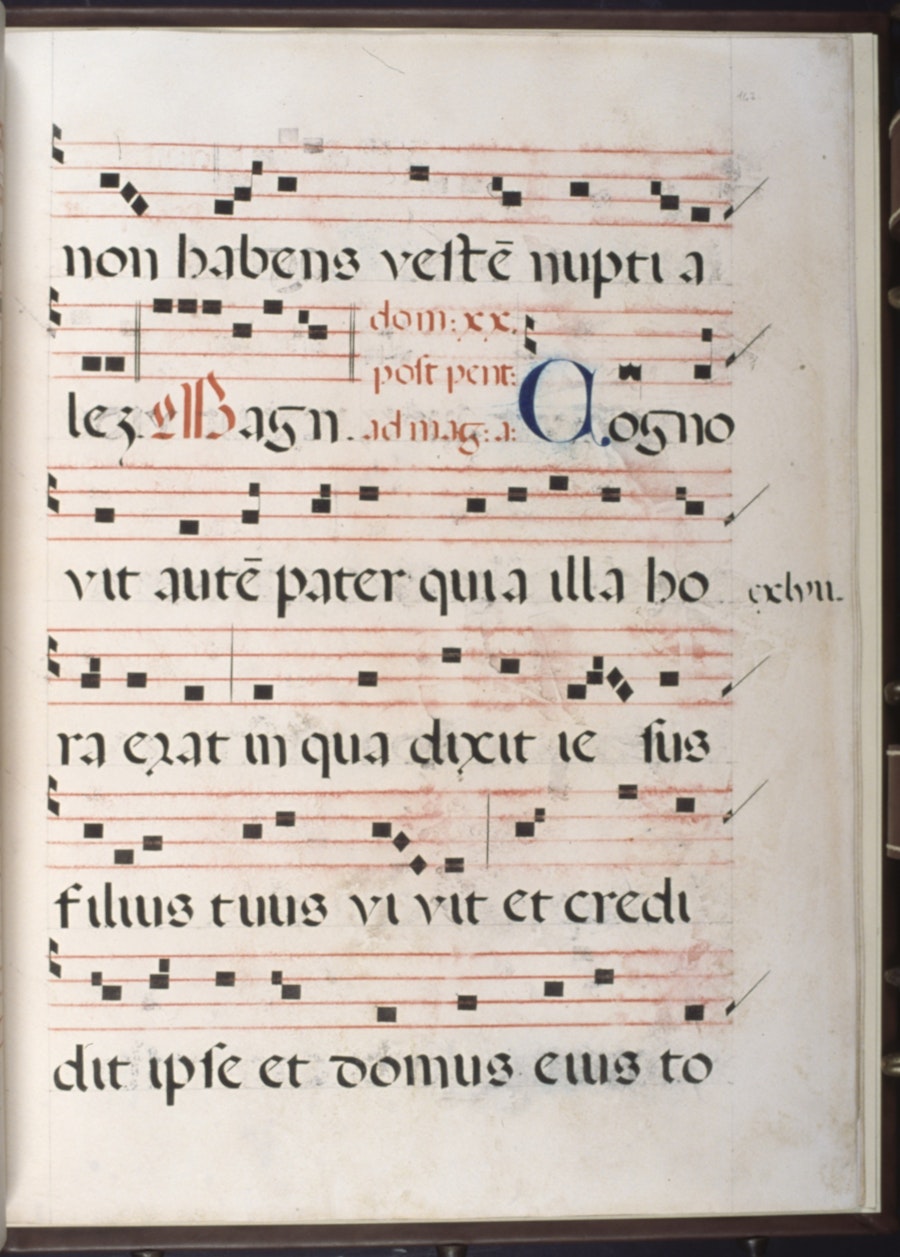 non habens vestē nuptia
lez. Magn. dom: xx. post pent: ad mag: a: Cogno
vit autē pater quia illa ho
cxlvii.
ra erat in qua dixit ie sus
filius tuus vivit et credi
dit ipse et domus eius to